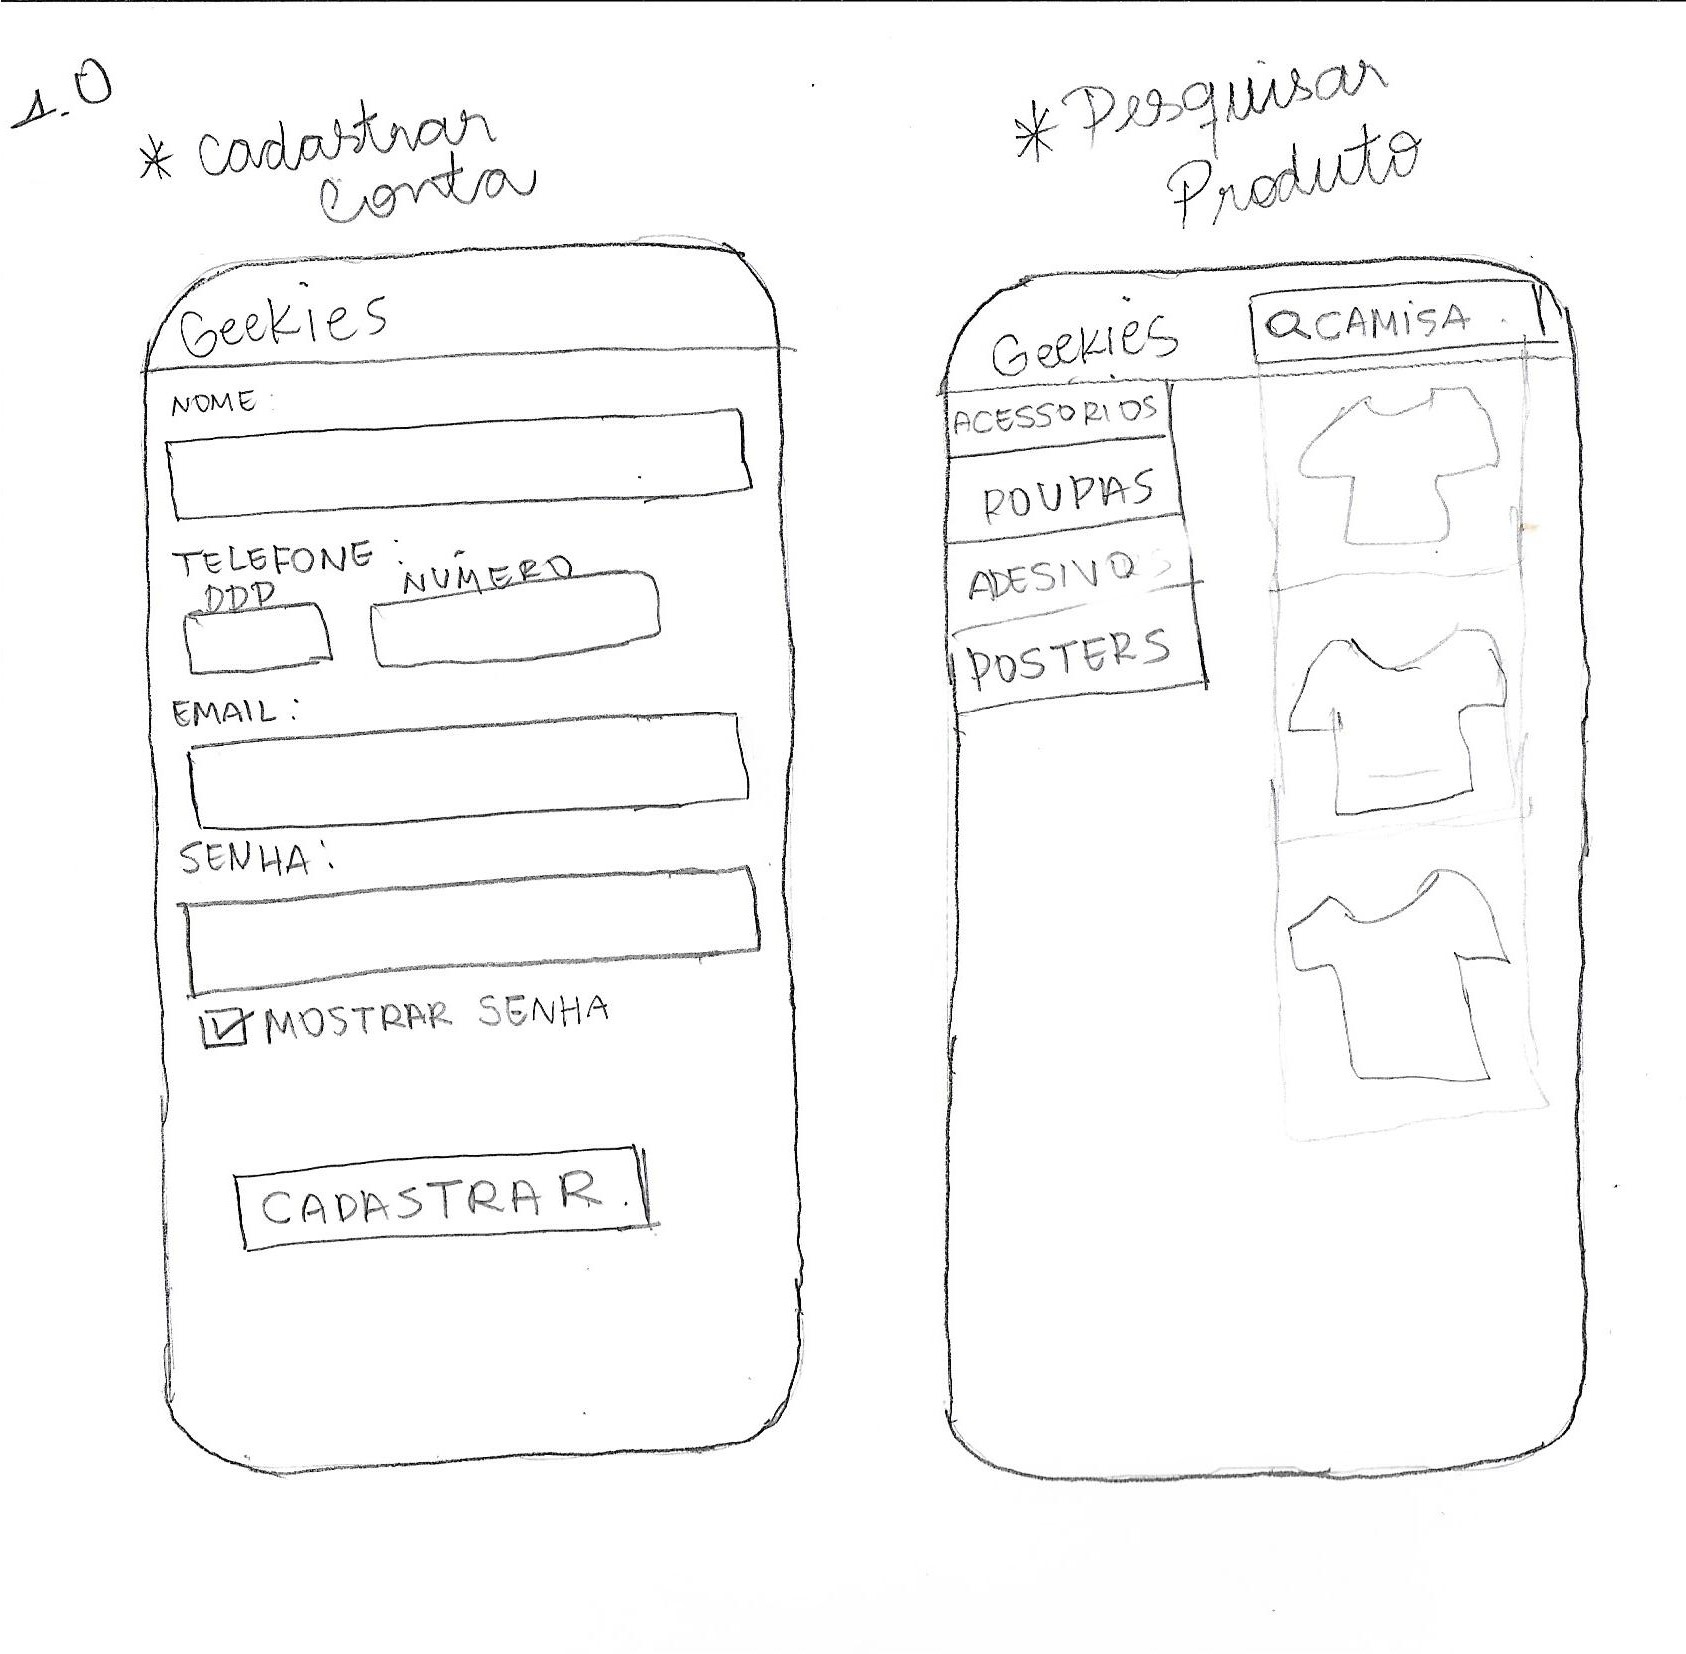 1.0
* Cadastrar
Conta
Geekies
NOME:
TELEFONE:
DDD NÚMERO
EMAIL:
SENHA:
MOSTRAR SENHA
CADASTRAR.
* Pesquisar
Produto
Geekies
CAMISA.
ACESSORIOS
ROUPAS
ADESIVOS
POSTERS